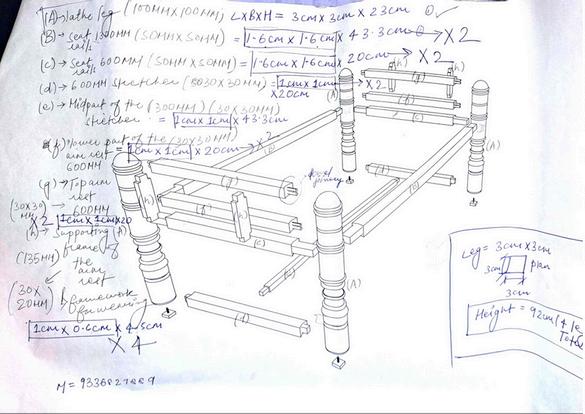 (A) → lathe leg (100MM X 100MM) LXBXH = 3cm x 3cm x 23cm ✓
(B) → seat 1300MM (50MM X 50MM) = 1.6cm x 1.6cm x 43.3cm → X 2
rails
(C) → Seat 600MM (50MM X 50MM) = 1.6cm x 1.6cm x 20cm → X 2
rails
(d) → 600MM stretcher (30 X 30MM) = 1cm x 1cm x 20cm → X 2
(e) → Midpart of the (1300MM) (30 X 30MM)
stretcher = 1cm x 1cm x 43.3cm
(f) Lower part of the (30 X 30MM)
arm rest = 1cm x 1cm x 20cm → X 2
600MM
(g) → Top arm
rest
(30 X 30 MM) → 600MM
X 2 1cm x 1cm x 20
(h) → Supporting
(135MM) frame of
the
arm
rest
(30 X 20MM) framework
for weaving
1cm x 0.6cm x 4.5cm
X 4
(A)
(A)
(A)
(A)
(h)
(g)
(h)
(f)
(c)
(e)
(f)
(g)
(h)
(h)
(f)
(c)
(d)
Leg = 3cm x 3cm
3cm plan
3cm
Height = 92cm